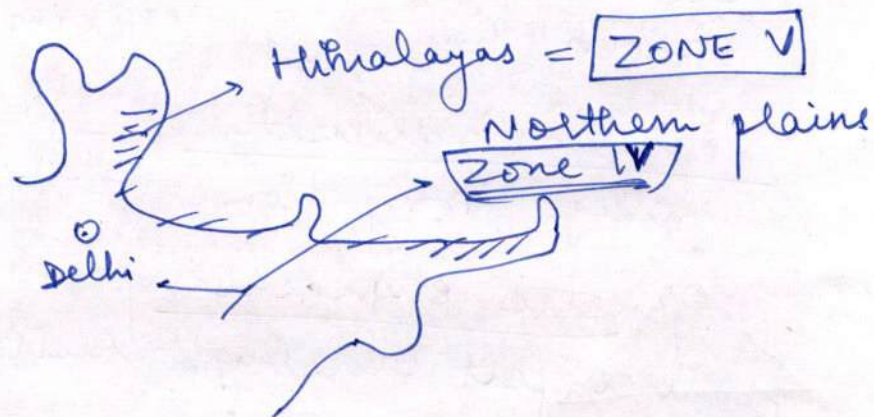 Himalayas = ZONE V
Northern plains
Zone IV
Delhi